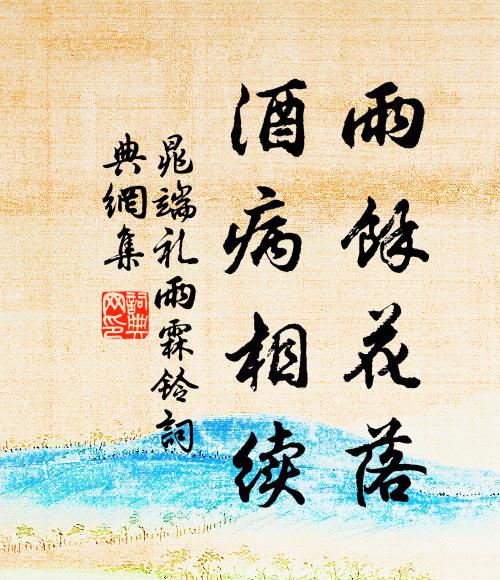 雨餘花落
酒病相续
晁端礼雨霖铃詞
典網集
詞典
网印